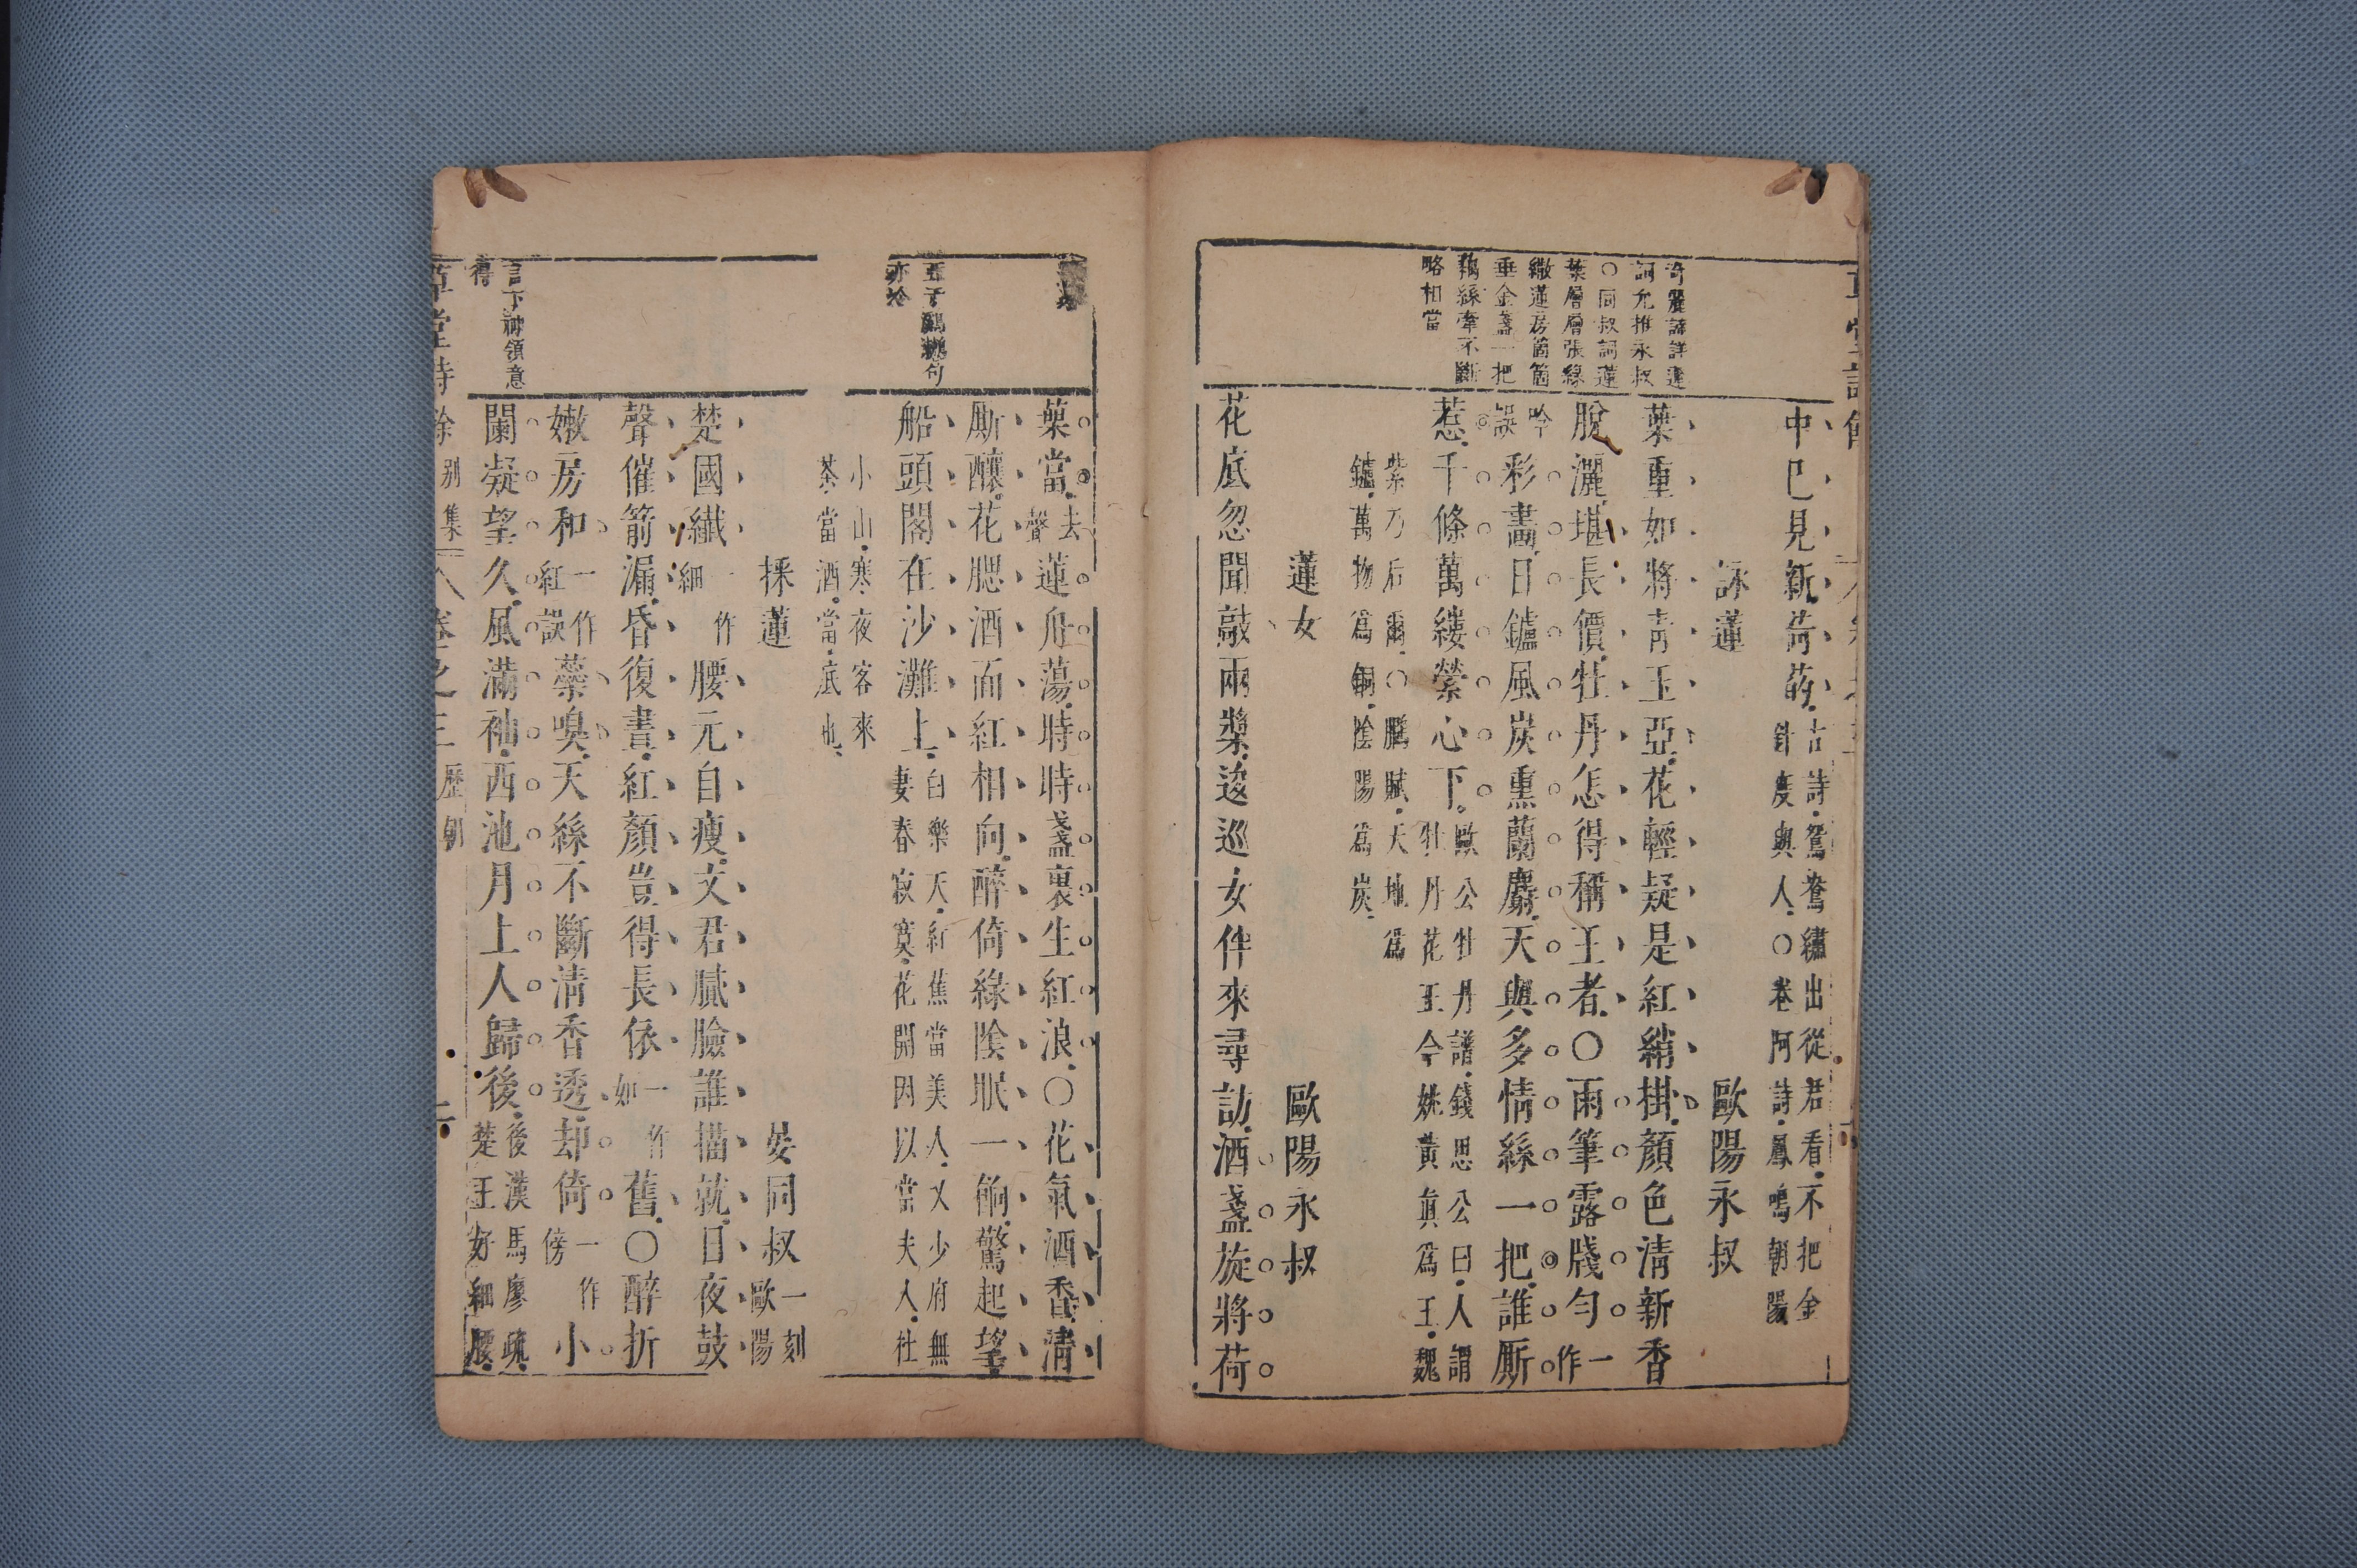 奇麗諦詳蓮
詞尤推永叔
○同叔詞蓮
葉層層張綠
繖蓮房箇箇
垂金盞一把
藕絲牽不斷
略相當
中巳見新荷葯古詩鴛鴦繡出從君看不把金
針度與人○卷阿詩鳳鳴朝陽
詠蓮 歐陽永叔
葉重如將青玉亞花輕疑是紅綃掛顏色清新香
脫灑堪長價牡丹怎得稱王者○雨筆露牋勻一作
吟誤彩畫日鑪風炭熏蘭麝天與多情絲一把誰厮
惹千條萬縷縈心下歐公牡丹譜錢思公曰人謂
牡丹花王今姚黃眞爲王魏
紫乃后爾○鵩賦天地爲
鑪萬物爲銅陰陽爲炭
蓮女 歐陽永叔
花底忽聞敲兩槳逡巡女伴來尋訪酒盞旋將荷
亦於
葉當去聲蓮舟蕩時時盞裏生紅浪○花氣酒香清
厮釀花腮酒面紅相向醉倚綠陰眠一餉驚起望
船頭閣在沙灘上白樂天紅蕉當美人又少府無
妻春寂寞花開因以當夫人杜
小山寒夜客來
茶當酒當底也
採蓮 晏同叔一刻歐陽
楚國纖一作細腰元自瘦文君膩臉誰描就日夜鼓
聲催箭漏昏復晝紅顏豈得長依一作如舊○醉折
嫩房和一作紅誤蘂嗅天絲不斷清香透却倚一作傍小
闌凝望久風滿袖西池月上人歸後後漢馬廖疏
楚王好細腰
言下神領意
得
草堂詩餘別集 卷之三 歷朝